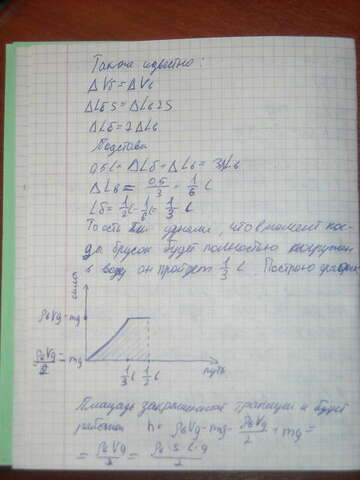 Также известно:
ΔVб = ΔVв
ΔLб S = ΔLв 2S
ΔLб = 2ΔLв
Подстави
0,5L = ΔLб + ΔLв = 3ΔLв
ΔLв = 0,5/3 = 1/6 L
Lб = 1/2 L - 1/6 L = 1/3 L
То есть мы узнали, что в момент ког-
да брусок будет полностью погружен
в воду он пройдет 1/3 L. Построю график
сила
ρвVg - mg
ρвVg/2 = mg
1/3 L 1/2 L
путь
Площадь закрашенной трапеции и будет
работой
A = ρвVg - mg - ρвVg/2 + mg =
= ρвVg/2 = ρв · S · L · g/2